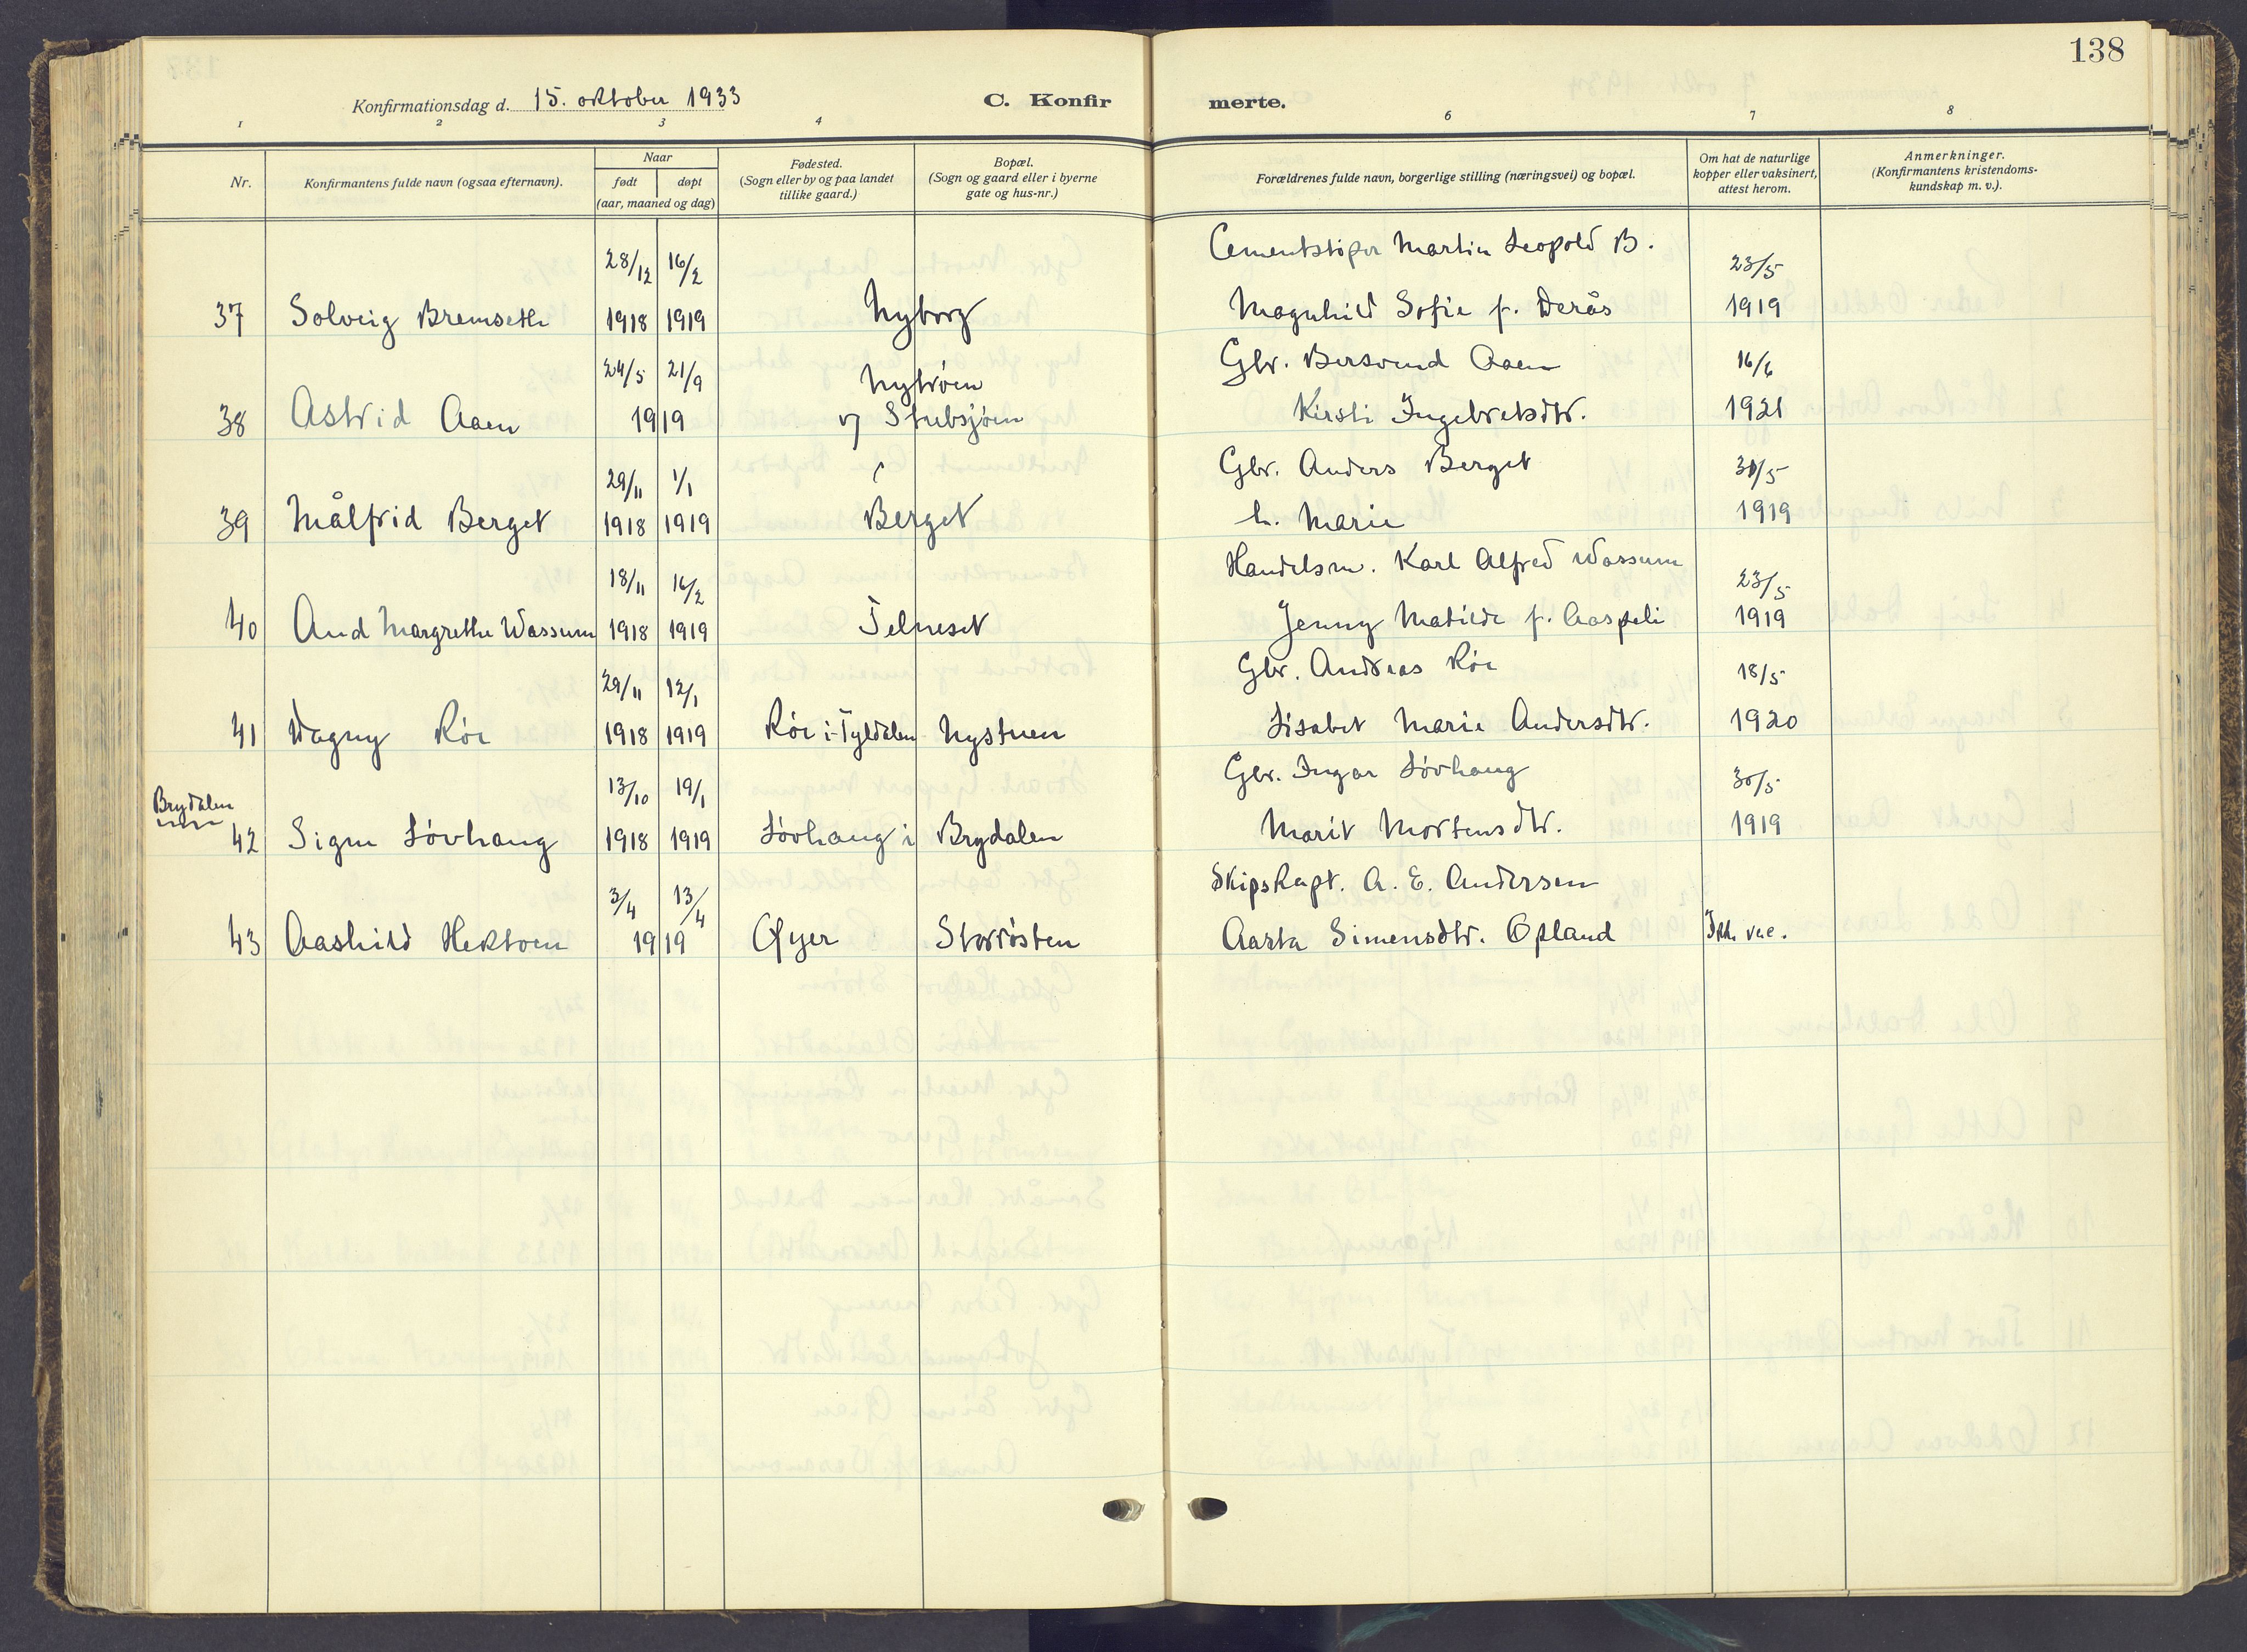 138
Konfirmationsdag d. 15. oktober 1933
C. Konfir merte.
1 2 3 4 6 7 8
Nr.
Konfirmantens fulde navn (ogsaa efternavn).
Naar
født døpt
(aar, maaned og dag)
Fødested.
(Sogn eller by og paa landet
tillike gaard.)
Bopæl.
(Sogn og gaard eller i byerne
gate og hus-nr.)
Forældrenes fulde navn, borgerlige stilling (næringsvei) og bopæl.
Om hat de naturlige
kopper eller vaksinert,
attest herom.
Anmerkninger.
(Konfirmantens kristendoms-
kundskap m. v.).
28/12 16/2 Cementstøper Martin Leopold B. 23/5
37 Solveig Bremseth 1918 1919 Nyborg Magnhild Sofie f. Derås 1919
24/5 21/9 Nytrøen Gbr. Bersvend Aaen 16/6
38 Astrid Aaen 1919 v/ Stubsjøen Kirsti Ingebretsdtr. 1921
29/11 1/1 Gbr. Anders Berget 30/5
39 Målfrid Berget 1918 1919 Berget h. Marie 1919
18/11 16/2 Handelsm. Karl Alfred Wassum 23/5
40 Aud Margrethe Wassum 1918 1919 Telneset Jenny Matilde f. Aaspeli 1919
29/11 12/1 Gbr. Andreas Røe 18/5
41 Dagny Røe 1918 1919 Røe i Tyldalen Nystuen Lisabet Marie Andersdtr. 1920
Brydalen 13/10 19/1 Gbr. Ingar Løvhaug 30/5
42 Signe Løvhaug 1918 1919 Løvhaug i Brydalen Marit Mortensdtr. 1919
3/4 13/4 Skipskapt. A. E. Andersen
43 Aashild Hektoen 1919 Øyer Storrøsten Aasta Simensdtr. Opland Ikke vac.